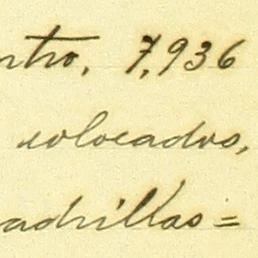 ntro, 7,936
colocados,
adrillas=